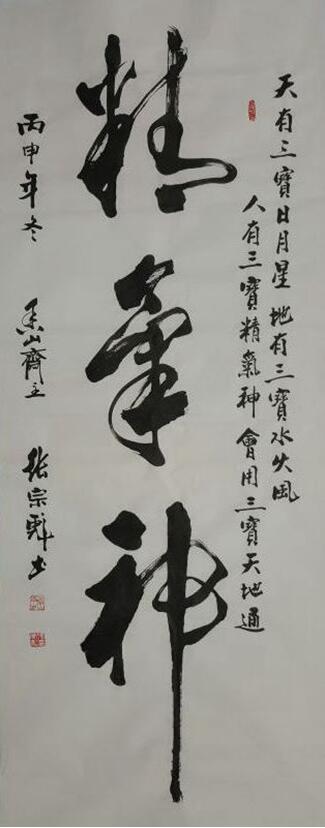 天有三寶日月星 地有三寶水火風
人有三寶精氣神 會用三寶天地通
精氣神
丙申年冬 山齋主 張宗彪书